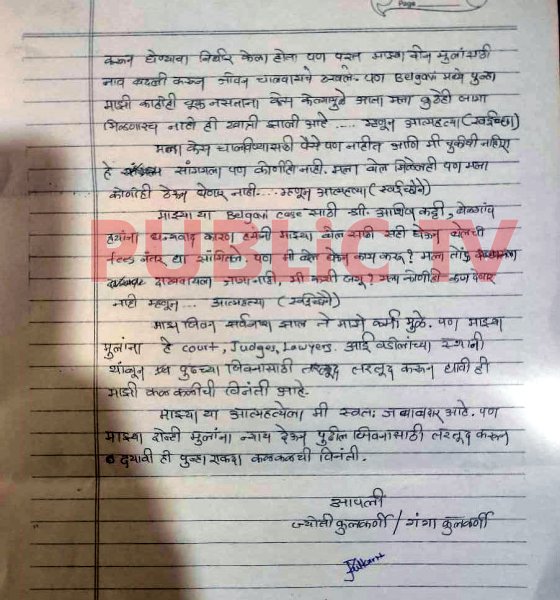 Page
करून घेण्याचा निर्धार केला होता पण परत माझ्या दोन मुलांसाठी
नाव बदली करून जीवन चालवायचे ठरवले. पण Belgavi मध्ये पुन्हा
माझी काहीही चूक नसताना केस केल्यामुळे आता मला कुठेही जागा
मिळणारच नाही ही खात्री झाली आहे .... म्हणून आत्महत्या (स्वईच्छा)
मला केस चालविण्यासाठी पैसे पण नाहीत आणि मी चुकीची नाहीए
हे सांगायला पण कोणीही नाही. मला बेल मिळेलही पण मला
कोणीही ठेऊन घेणार नाही.... म्हणून आत्महत्या (स्वईच्छेने)
माझ्या या Belgavi case साठी श्री. आशिष कट्टी, बेळगांव
ह्यांना धन्यवाद कारण त्यांनी माझ्या बेल साठी सही घेऊन बेलची
fees नंतर द्या सांगितले. पण मी बेल घेऊन काय करू? मला तोंड
दाखवायला जागा नाही, मी कशी जगू? मला कोणीही काम देणार
नाही म्हणून... आत्महत्या (स्वईच्छेने)
माझं जिवन सर्वनाश झाल ते माझे कर्मा मुळे. पण माझ्या
मुलांना हे court, Judges, Lawyers. आई वडीलांच्या स्थानी
थांबून पुढच्या जिवनासाठी तरतूद करून द्यावी ही
माझी कळकळीची विनंती आहे.
माझ्या या आत्महत्येला मी स्वतः जबाबदार आहे. पण
माझ्या दोन्ही मुलांना न्याय देऊन पुढील जिवनासाठी तरतूद करून
द्यावी ही पुन्हा एकदा कळकळची विनंती.
आपली
ज्योती कुलकर्णी / गंगा कुलकर्णी
PUBLiC TV